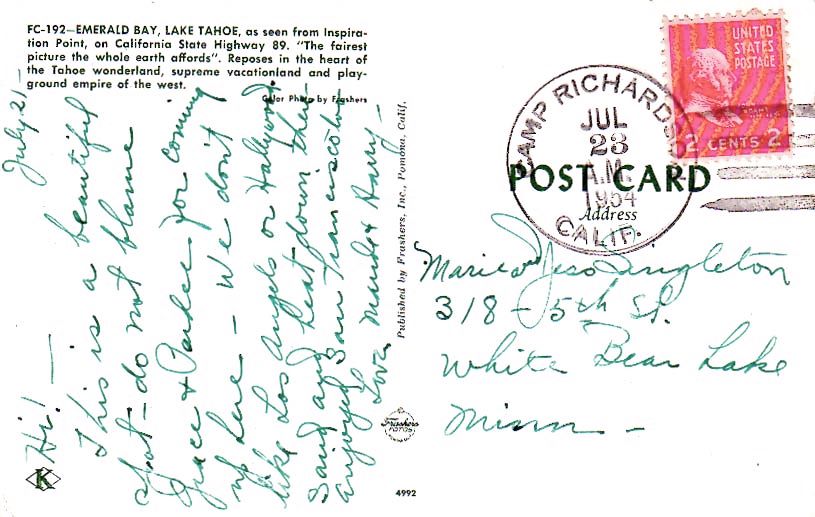 FC-192—EMERALD BAY, LAKE TAHOE, as seen from Inspira-
tion Point, on California State Highway 89. "The fairest
picture the whole earth affords". Reposes in the heart of
the Tahoe wonderland, supreme vacationland and play-
ground empire of the west.
Color Photo by Frashers
July 21—
Hi! —
This is a beautiful
spot — do not blame
Grace & Parker for coming
up here — We don't
like Los Angels or Hollywood
Said and heat down there
enjoyed San Francisco tho
Love Maude & Harry —
Published by Frashers, Inc., Pomona, Calif.
Frashers
FOTOS
K
4992
UNITED
STATES
POSTAGE
2 CENTS 2
CAMP RICHARDSON
JUL
23
A.M.
1954
CALIF.
POST CARD
Address
Marie Singleton
318 - 5th St.
White Bear Lake
Minn —